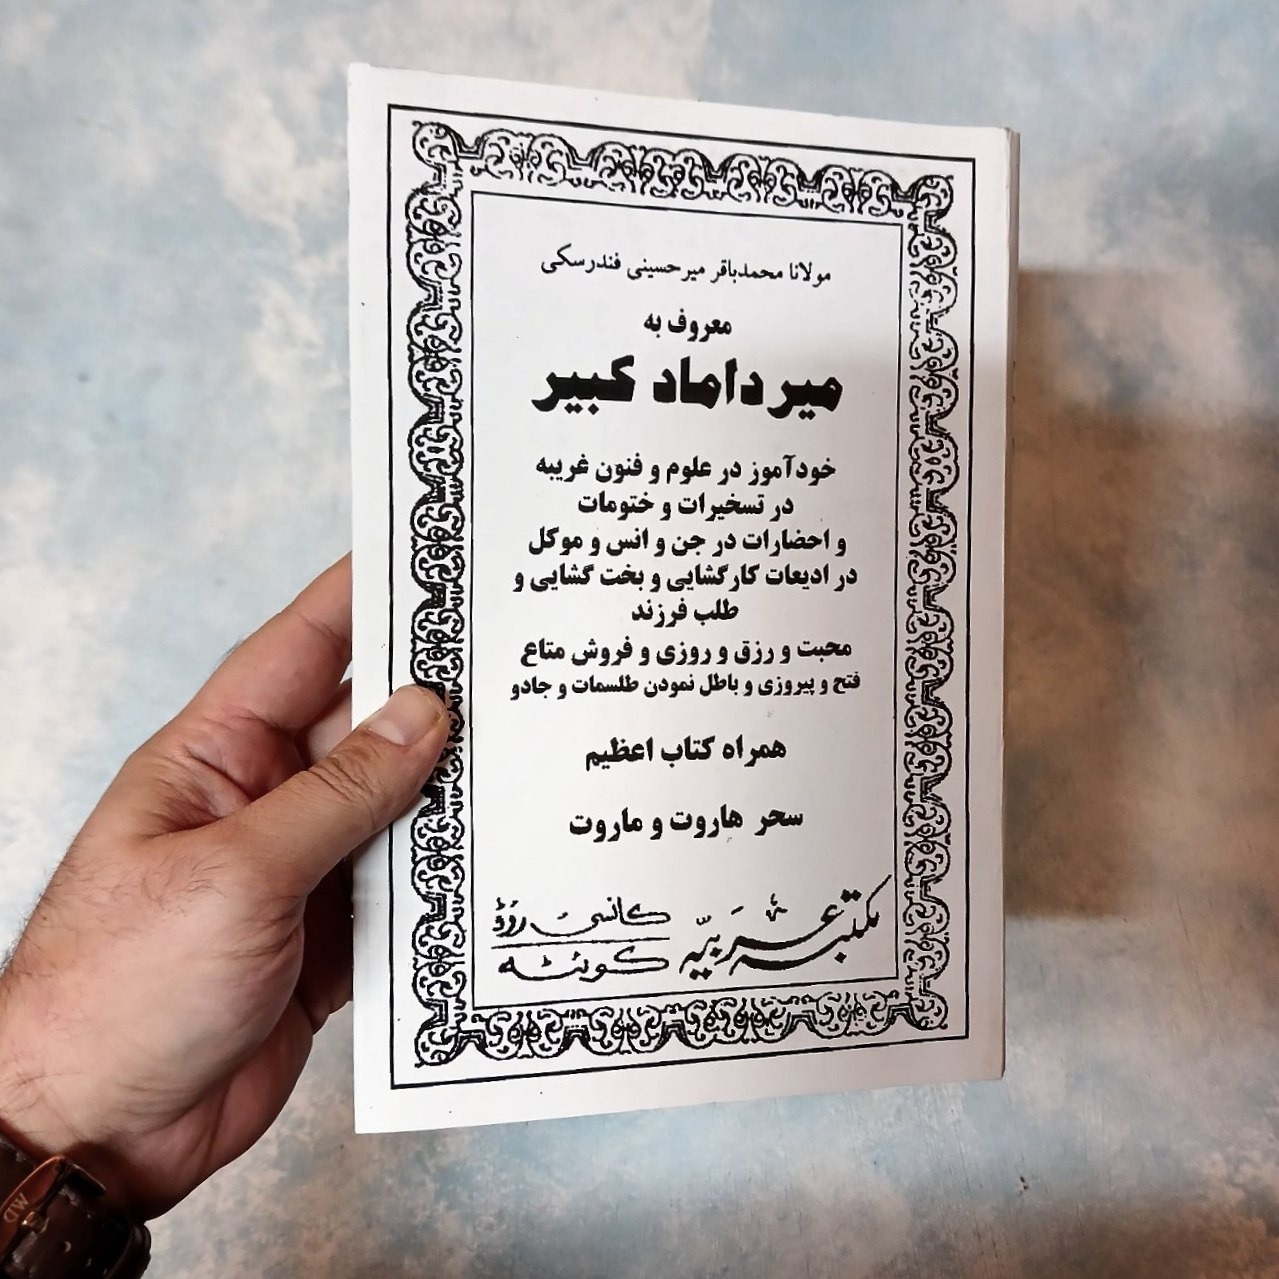 مولانا محمدباقر میرحسینی فندرسکی
معروف به
میرداماد کبیر
خودآموز در علوم و فنون غریبه
در تسخیرات و ختومات
و احضارات در جن و انس و موکل
در ادیعات کارگشایی و بخت گشایی و
طلب فرزند
محبت و رزق و روزی و فروش متاع
فتح و پیروزی و باطل نمودن طلسمات و جادو
همراه کتاب اعظیم
سحر هاروت و ماروت
مکتبہ عَربیّہ
کانسی رَوڈ
کوئٹہ